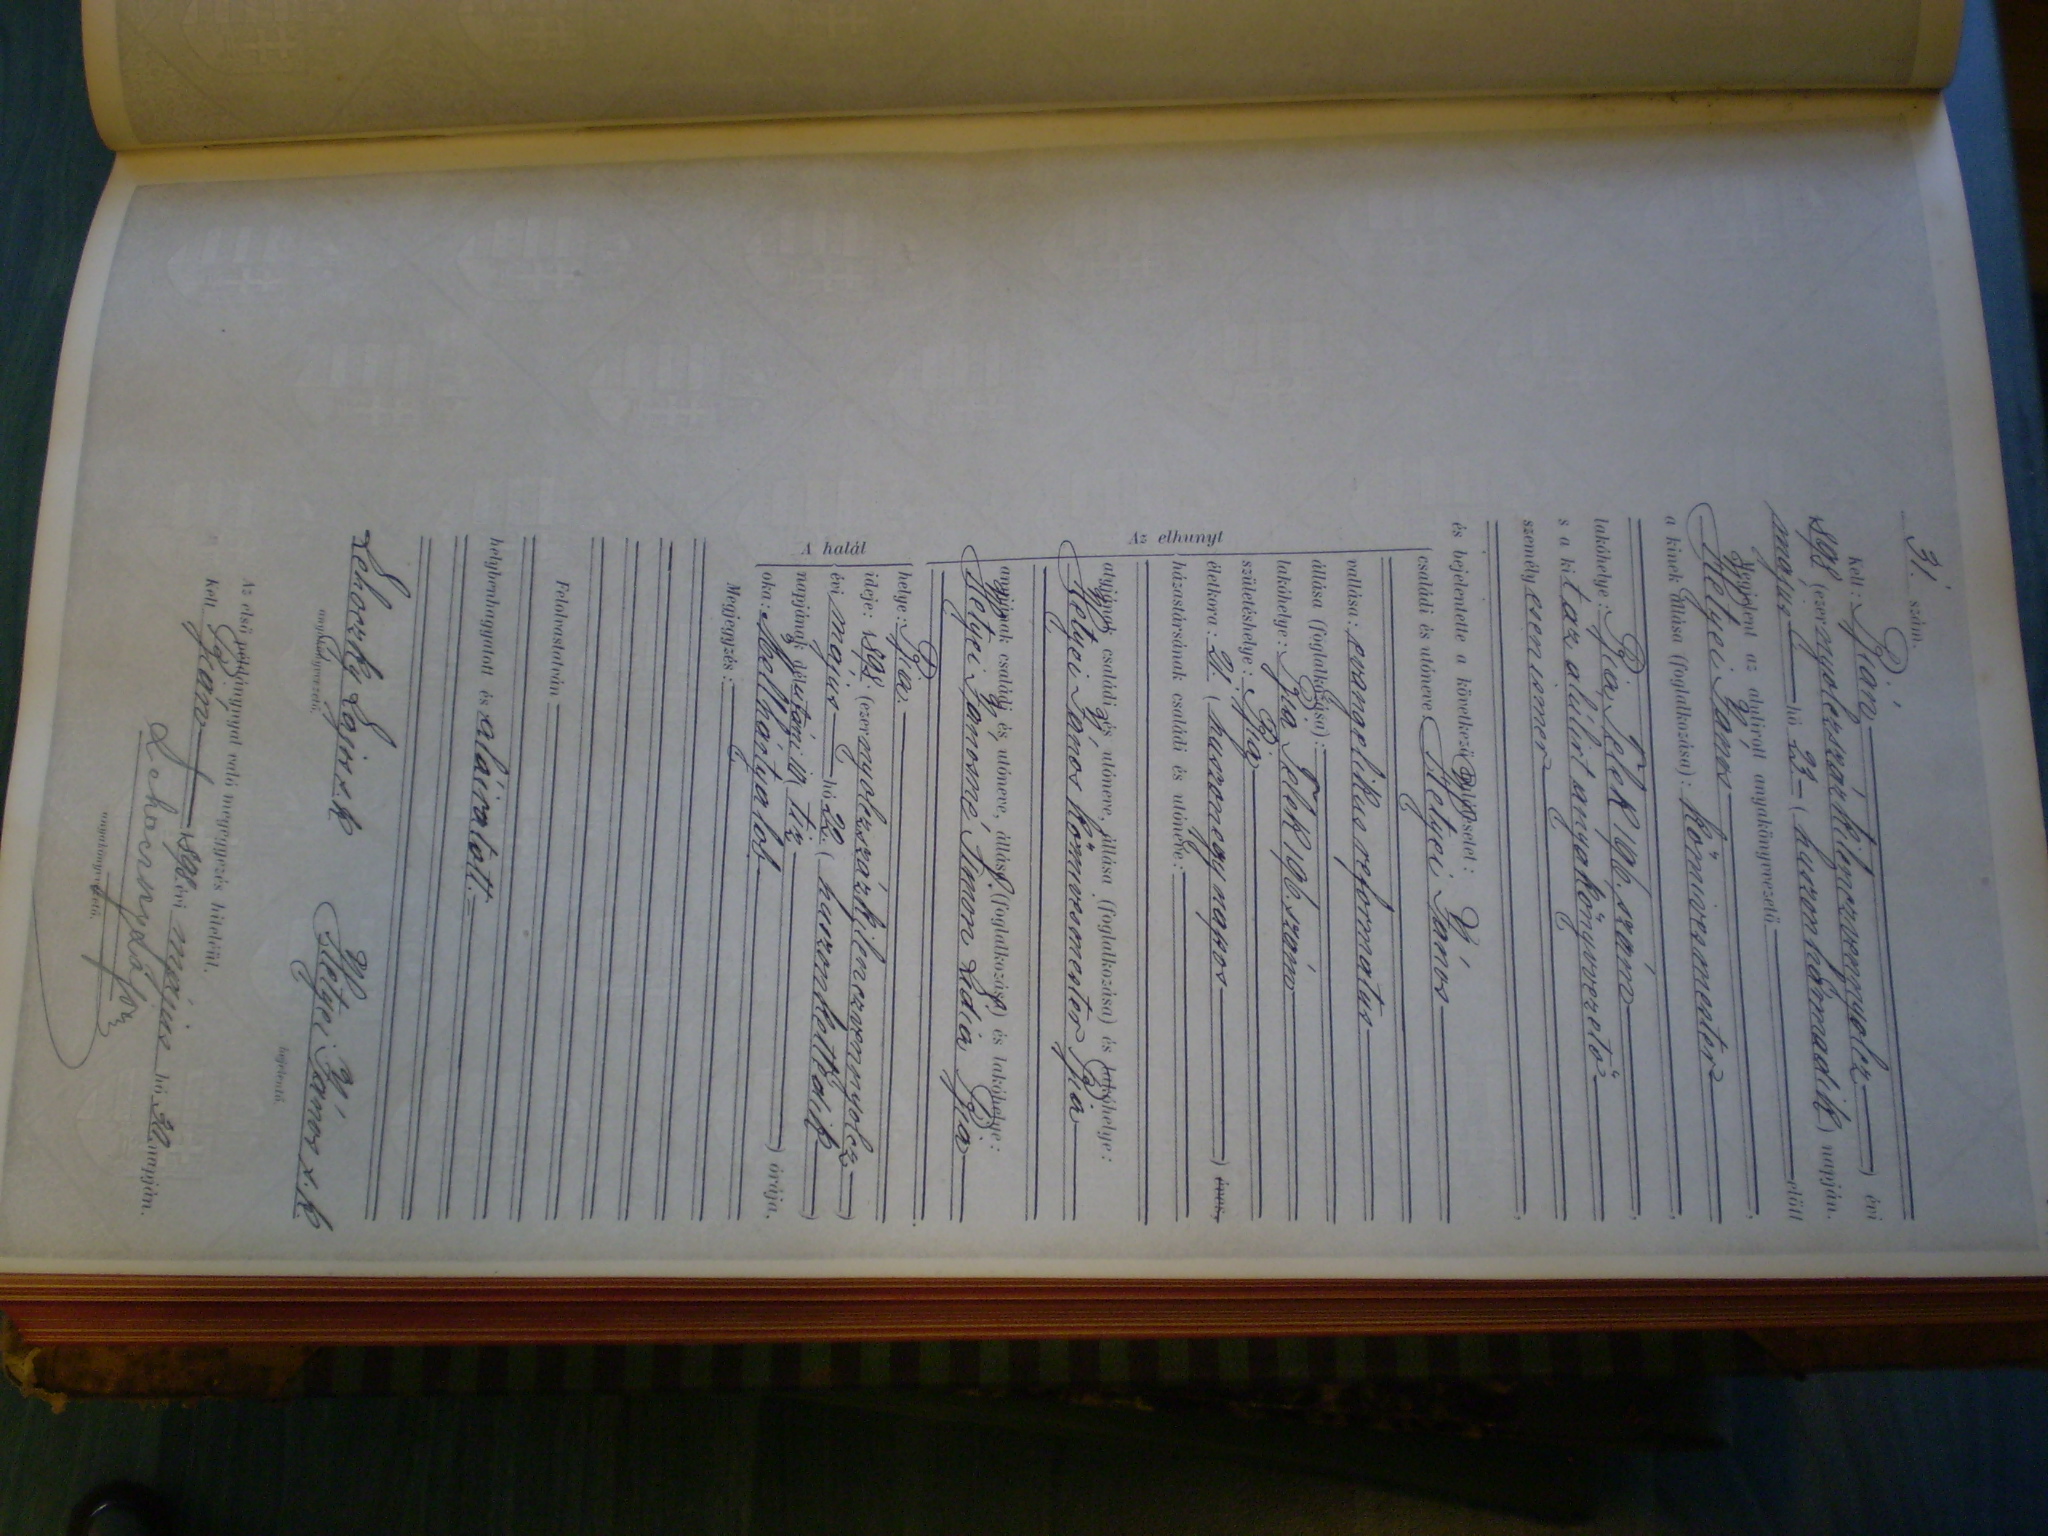 31. szám.
Kelt: Bián évi
1898 (ezernyolczszázkilenczvennyolcz) évi
május hó 23 (huszonharmadik) napján.
Megjelent az alulírott anyakönyvvezető előtt
Helyei János
a kinek állása (foglalkozása): kőmívesmester,
lakóhelye: Bia, Telek 196. szám,
s a kit az alulírt anyakönyvvezető
személyesen ismer,
és bejelentette a következő halálesetet:
Az elhunyt
családi és utóneve: Helyei János
vallása: evangelikus reformatus
állása (foglalkozása):
lakóhelye: Bia Telek 196. szám
születéshelye: Bia
életkora: 21. (huszonegy napos) éves,
házastársának családi és utóneve:
atyjának családi és utóneve, állása (foglalkozása) és lakóhelye:
Helyei János kőmívesmester Bia
anyjának családi és utóneve, állása (foglalkozása) és lakóhelye:
Helyei Jánosné, Simon Lidia Bia
A halál
helye: Bia.
ideje: 1898 (ezernyolczszázkilenczvennyolcz)
évi május hó 22. (huszonkettedik)
napjának délutáni tíz órája.
oka:
Megjegyzés:
Felolvastatván
helybenhagyatott és aláíratott.
Lajos s.k Helyei János s.k
anyakönyvvezető. bejelentő.
Az első példánynyal való megegyezés hiteléül.
Kelt Bián 1898 évi május hó 30. napján.
anyakönyvvezető.